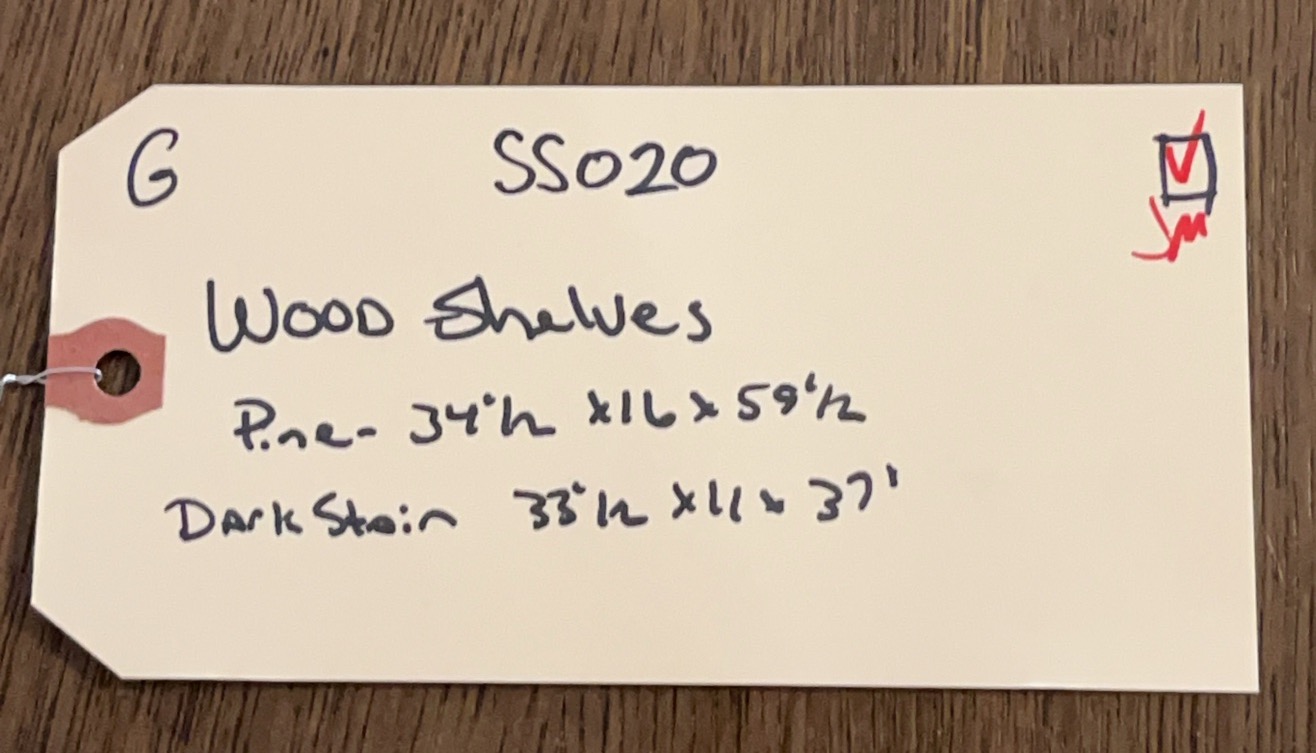 G SS020
Jm
Wood Shelves
Pine - 34 1/2 x 16 x 59 1/2
Dark Stain 33 1/2 x 11 x 37'